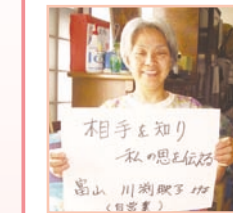 相手を知り
私の思を伝える
富山 川渕映子
(自営業)